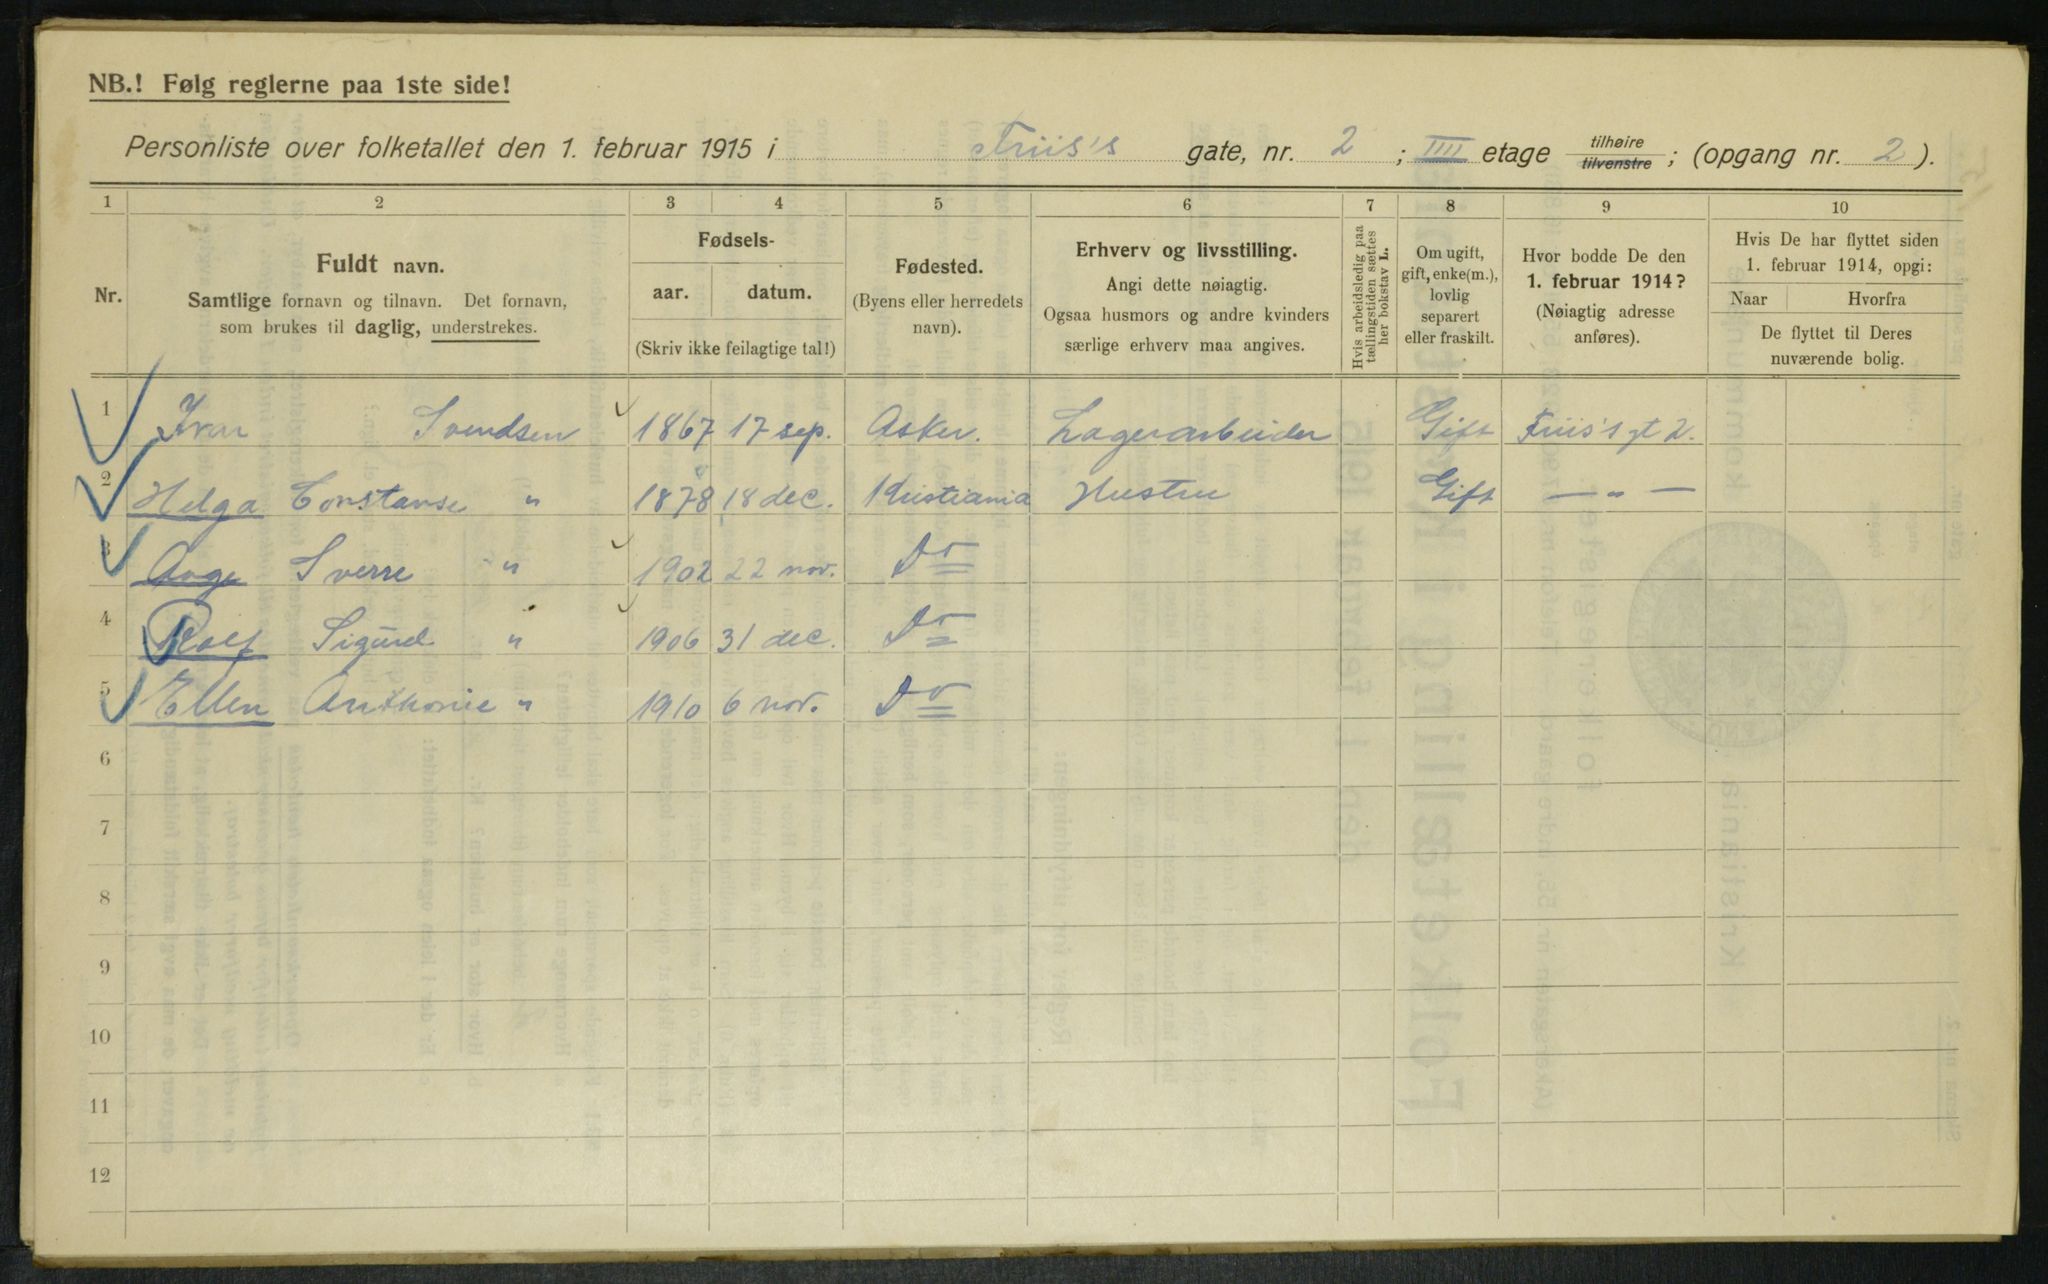 NB.! Følg reglerne paa 1ste side!
Personliste over folketallet den 1. februar 1915 i Friis's gate, nr. 2 ; IIII etage tilhøire tilvenstre ; (opgang nr. 2 ).
1 2 3 4 5 6 7 8 9 10
Nr.
Fuldt navn.
Samtlige fornavn og tilnavn. Det fornavn,
som brukes til daglig, understrekes.
Fødsels-
aar. datum.
(Skriv ikke feilagtige tal!)
Fødested.
(Byens eller herredets
navn).
Erhverv og livsstilling.
Angi dette nøiagtig.
Ogsaa husmors og andre kvinders
særlige erhverv maa angives.
Hvis arbeidsledig paa
tællingstiden sættes
her bokstav L.
Om ugift,
gift, enke(m.),
lovlig
separert
eller fraskilt.
Hvor bodde De den
1. februar 1914?
(Nøiagtig adresse
anføres).
Hvis De har flyttet siden
1. februar 1914, opgi:
Naar Hvorfra
De flyttet til Deres
nuværende bolig.
1 Ivar Svendsen 1867 17 sep. Asker. Lagerarbeider Gift Friis's gt 2.
2 Helga Constanse " 1878 18 dec. Kristiania Hustru Gift — " —
3 Aage Sverre " 1902 22 nov. Do
4 Rolf Sigurd " 1906 31 dec. Do
5 Ellen Anthonie " 1910 6 nov. Do
6
7
8
9
10
11
12